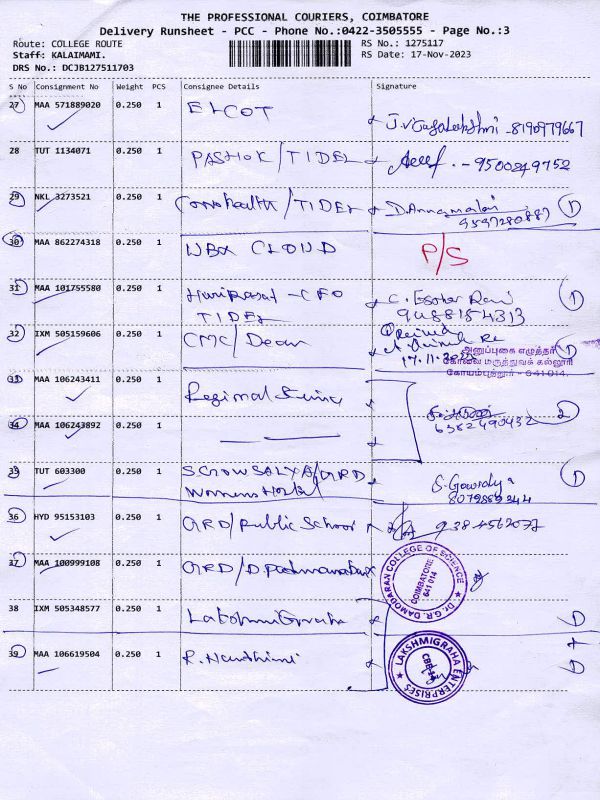 THE PROFESSIONAL COURIERS, COIMBATORE
Delivery Runsheet - PCC - Phone No.:0422-3505555 - Page No.:3
Route: COLLEGE ROUTE RS No.: 1275117
Staff: KALAIMAMI. RS Date: 17-Nov-2023
DRS No.: DCJB127511703
S No Consignment No Weight PCS Consignee Details Signature
27 MAA 571889020 0.250 1 ELCOT
8190979667
28 TUT 1134071 0.250 1 PASHOK/TIDEL 9500249752
29 NKL 3273521 0.250 1 /TIDEL D. Annamalai 1
9597280887
30 MAA 862274318 0.250 1 WBX CLOUD P/S
31 MAA 101755580 0.250 1 Hariprasat - CFO 1
TIDEL 9488184313
32 IXM 505159606 0.250 1 CMC/Dean 1
அனுப்புகை எழுத்தர்
கோவை மருத்துவக் கல்லூரி
கோயம்புத்தூர் - 641 014.
33 MAA 106243411 0.250 1 Regional
34 MAA 106243892 0.250 1 6382490432 2
35 TUT 603300 0.250 1 S GOWSALYA/GRD S. Gowsalya 1
Womens Hostel
36 HYD 95153103 0.250 1 GRD/Public School
37 MAA 100999108 0.250 1 GRD/D. Padmanaban
Dr. G.R. DAMODARAN COLLEGE OF SCIENCE
COIMBATORE
641 014
38 IXM 505348577 0.250 1 LakshmiGraha
39 MAA 106619504 0.250 1 R. Nandhini
LAKSHMIGRAHA ENTERPRISES